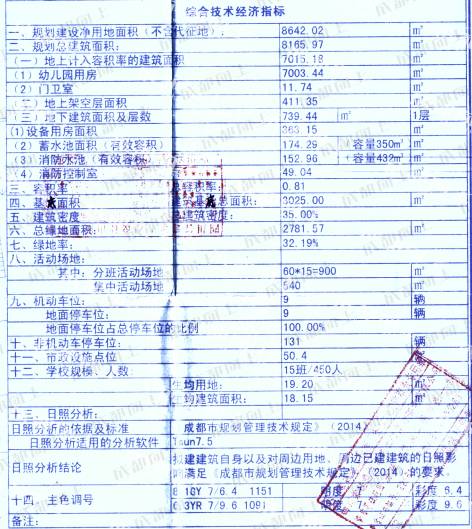 综合技术经济指标
一、规划建设净用地面积（不含代征地）： 8642.02 ㎡
二、规划总建筑面积： 8165.97 ㎡
（一）地上计入容积率的建筑面积 7015.18 ㎡
（1）幼儿园用房 7003.44 ㎡
（2）门卫室 11.74 ㎡
（二）地上架空层面积 411.35 ㎡
（三）地下建筑面积及层数 739.44 ㎡ 1层
（1）设备用房面积 363.15 ㎡
（2）蓄水池面积（有效容积） 174.29 容量350㎡
（3）消防水池（有效容积） 152.96 容量432㎡
（4）消防控制室 49.04 ㎡
三、容积率 总容积率： 0.81
四、基底面积 建筑基底总面积： 3025.00 ㎡
五、建筑密度 总建筑密度： 35.00%
六、总绿地面积： 2781.57 ㎡
七、绿地率： 32.19%
八、活动场地：
其中：分班活动场地 60*15=900 ㎡
集中活动场地 540 ㎡
九、机动车位： 9 辆
地面停车位： 9 辆
地面停车位占总停车位的比例 100.00%
十、非机动车停车位： 131 辆
十一、市政设施点位 50.4
十二、学校规模、人数： 15班/450人
生均用地： 19.20
生均建筑面积： 18.15
十三、日照分析：
日照分析的依据及标准 成都市规划管理技术规定》（2014）
日照分析适用的分析软件 Tsun7.5
日照分析结论 拟建建筑自身以及对周边用地、周边已建建筑的日照影
响满足《成都市规划管理技术规定》（2014）的要求。
十四、主色调号 10Y 7/6.4 1151 明度 7 彩度 6.4
3YR 7/9.6 1091 7 彩度 9.6
备注：